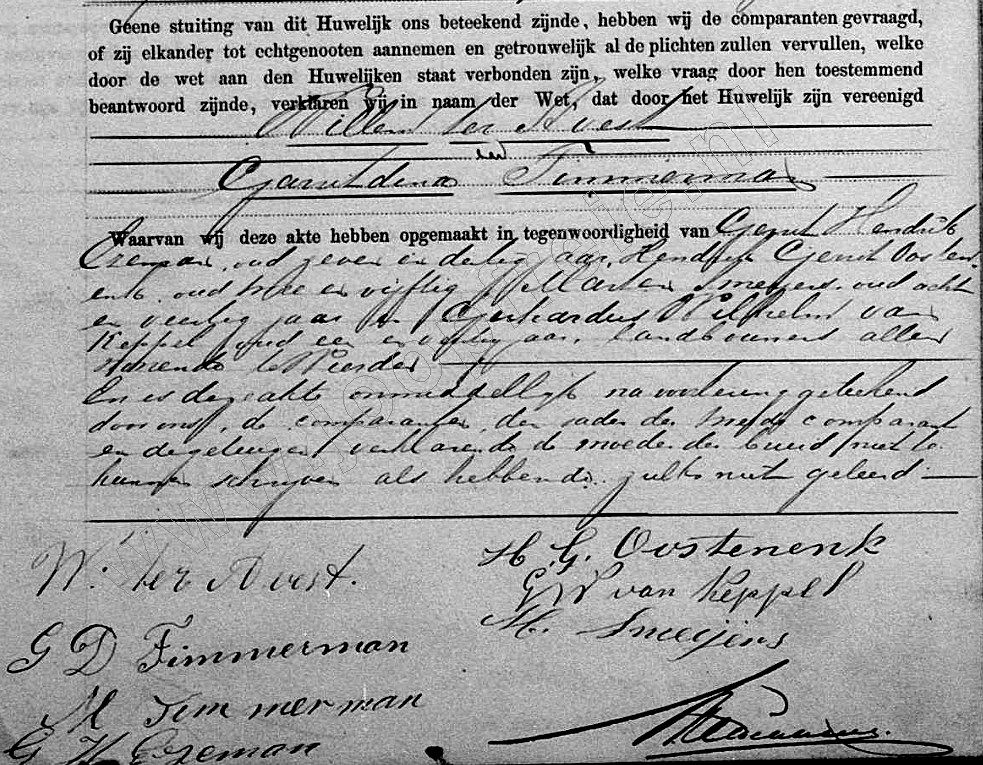 Geene stuiting van dit Huwelijk ons beteekend zijnde, hebben wij de comparanten gevraagd,
of zij elkander tot echtgenooten aannemen en getrouwelijk al de plichten zullen vervullen, welke
door de wet aan den Huwelijken staat verbonden zijn, welke vraag door hen toestemmend
beantwoord zijnde, verklaren wij in naam der Wet, dat door het Huwelijk zijn vereenigd
Willem ter Avest
en
Gerritdina Timmerman
Waarvan wij deze akte hebben opgemaakt in tegenwoordigheid van Gerrit Hendrik
Ezeman, oud zeven en dertig jaar, Hendrik Gerrit Oosten
enk oud twee en vijftig, Marten Smeijers oud acht
en veertig jaar en Gerhardus Wilhelm van
Keppel oud een en vijftig jaar, landbouwers allen
wonende te Wierden
En is deze akte onmiddellijk na voorlezing geteekend
door ons, de comparanten, den vader der mede comparant
en de getuigen verklarende de moeder der bruid niet te
kunnen schrijven als hebbende zulks niet geleerd
W. ter Avest.
H. G. Oostenenk
G W van Keppel
M. Smeijers
G D Timmerman
M Timmerman
G H Ezeman